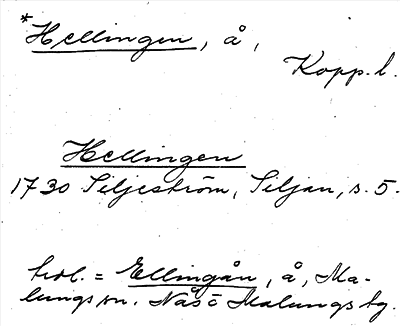 *Hellingen, å,
Kopp. l.
Hellingen
1730 Siljeström, Siljan, s. 5.
trol. = Ellingån, å, Ma-
lungs sn. Nås o Malungs tg.